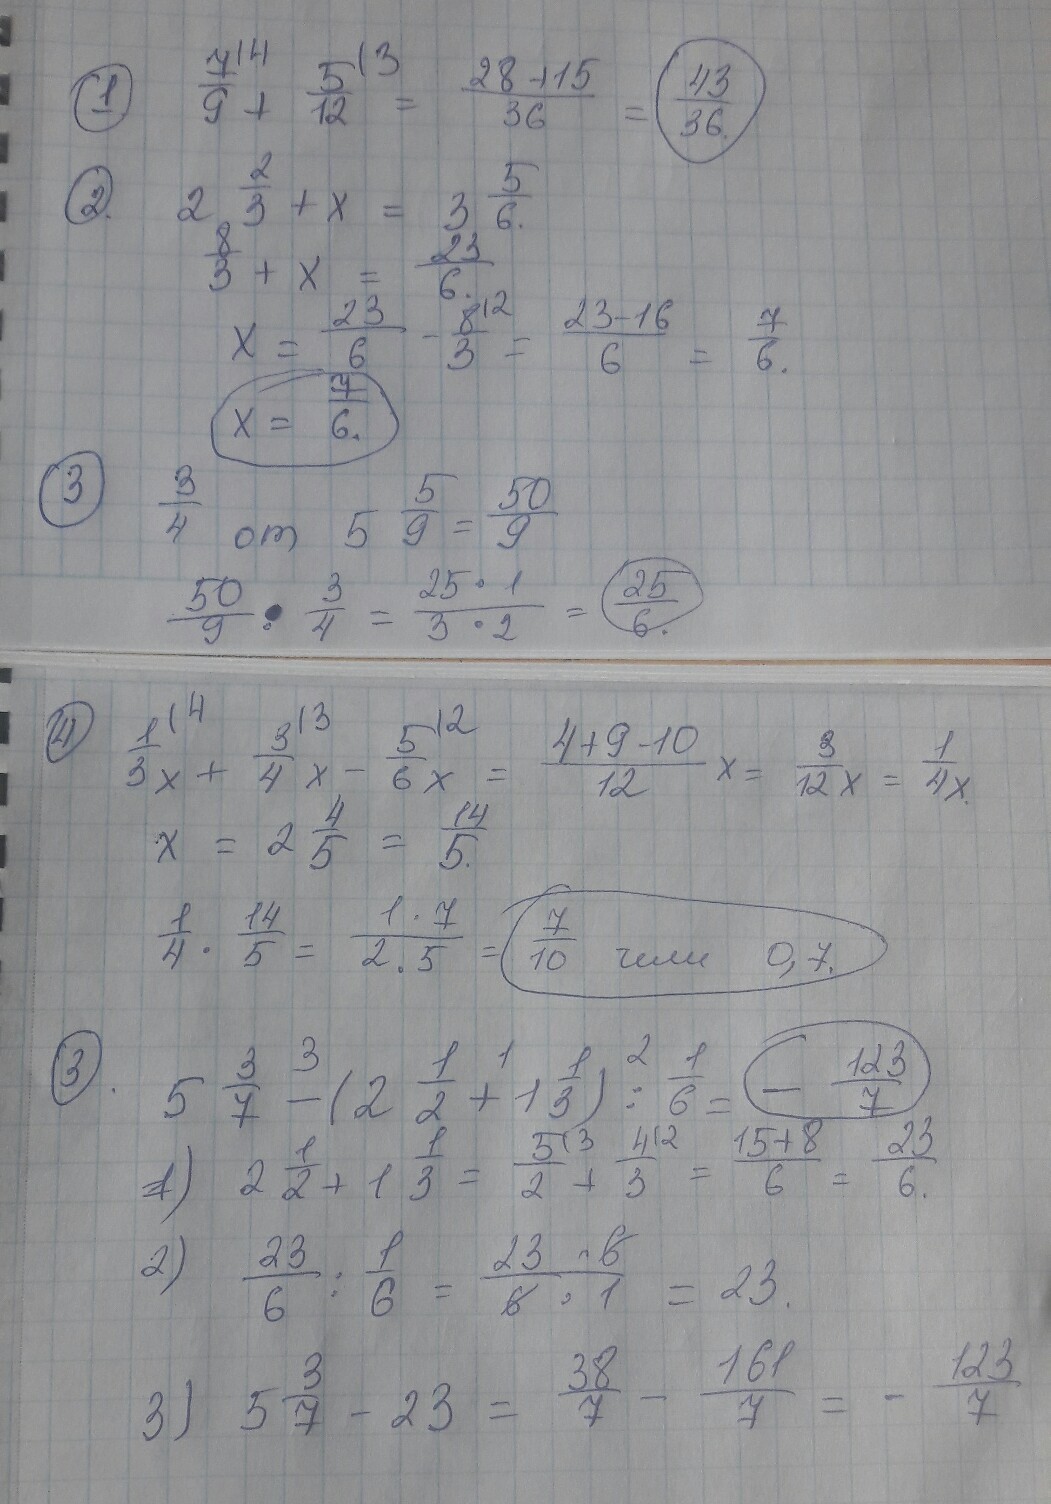 ① 7/9⁽⁴ + 5/12⁽³ = (28+15)/36 = 43/36.
②. 2 2/3 + x = 3 5/6.
8/3 + x = 23/6.
x = 23/6 - 8/3⁽² = (23-16)/6 = 7/6.
x = 7/6.
③ 3/4 от 5 5/9 = 50/9
50/9 · 3/4 = (25·1)/(3·2) = 25/6.
④ 1/3⁽⁴x + 3/4⁽³x - 5/6⁽²x = (4+9-10)/12 x = 3/12 x = 1/4 x.
x = 2 4/5 = 14/5.
1/4 · 14/5 = (1·7)/(2·5) = 7/10 или 0,7.
③. 5 3/7 -³ (2 1/2 +¹ 1 1/3) :² 1/6 = - 123/7
1) 2 1/2 + 1 1/3 = 5/2⁽³ + 4/3⁽² = (15+8)/6 = 23/6.
2) 23/6 : 1/6 = (23·6)/(6·1) = 23.
3) 5 3/7 - 23 = 38/7 - 161/7 = - 123/7